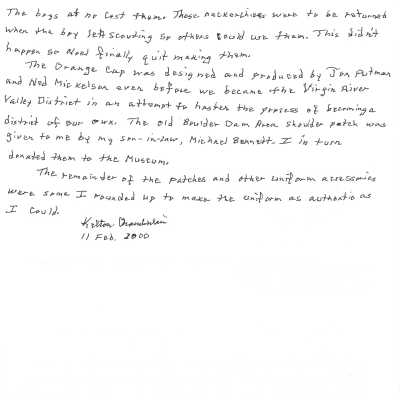 The boys at no cost them. These neckerchives were to be returned
when the boy left scouting so others could use them. This didn't
happen so Noel finally quit making them.
The Orange Cap was designed and produced by Jon Putman
and Ned Mickelson even before we became the Virgin River
Valley District in an attempt to hasten the process of becoming a
district of our own. The old Boulder Dam Area shoulder patch was
given to me by my son-in-law, Michael Bennett. I in turn
donated them to the Museum.
The remainder of the patches and other uniform accessories
were some I rounded up to make the uniform as authentic as
I could.
Kelton
11 Feb. 2000